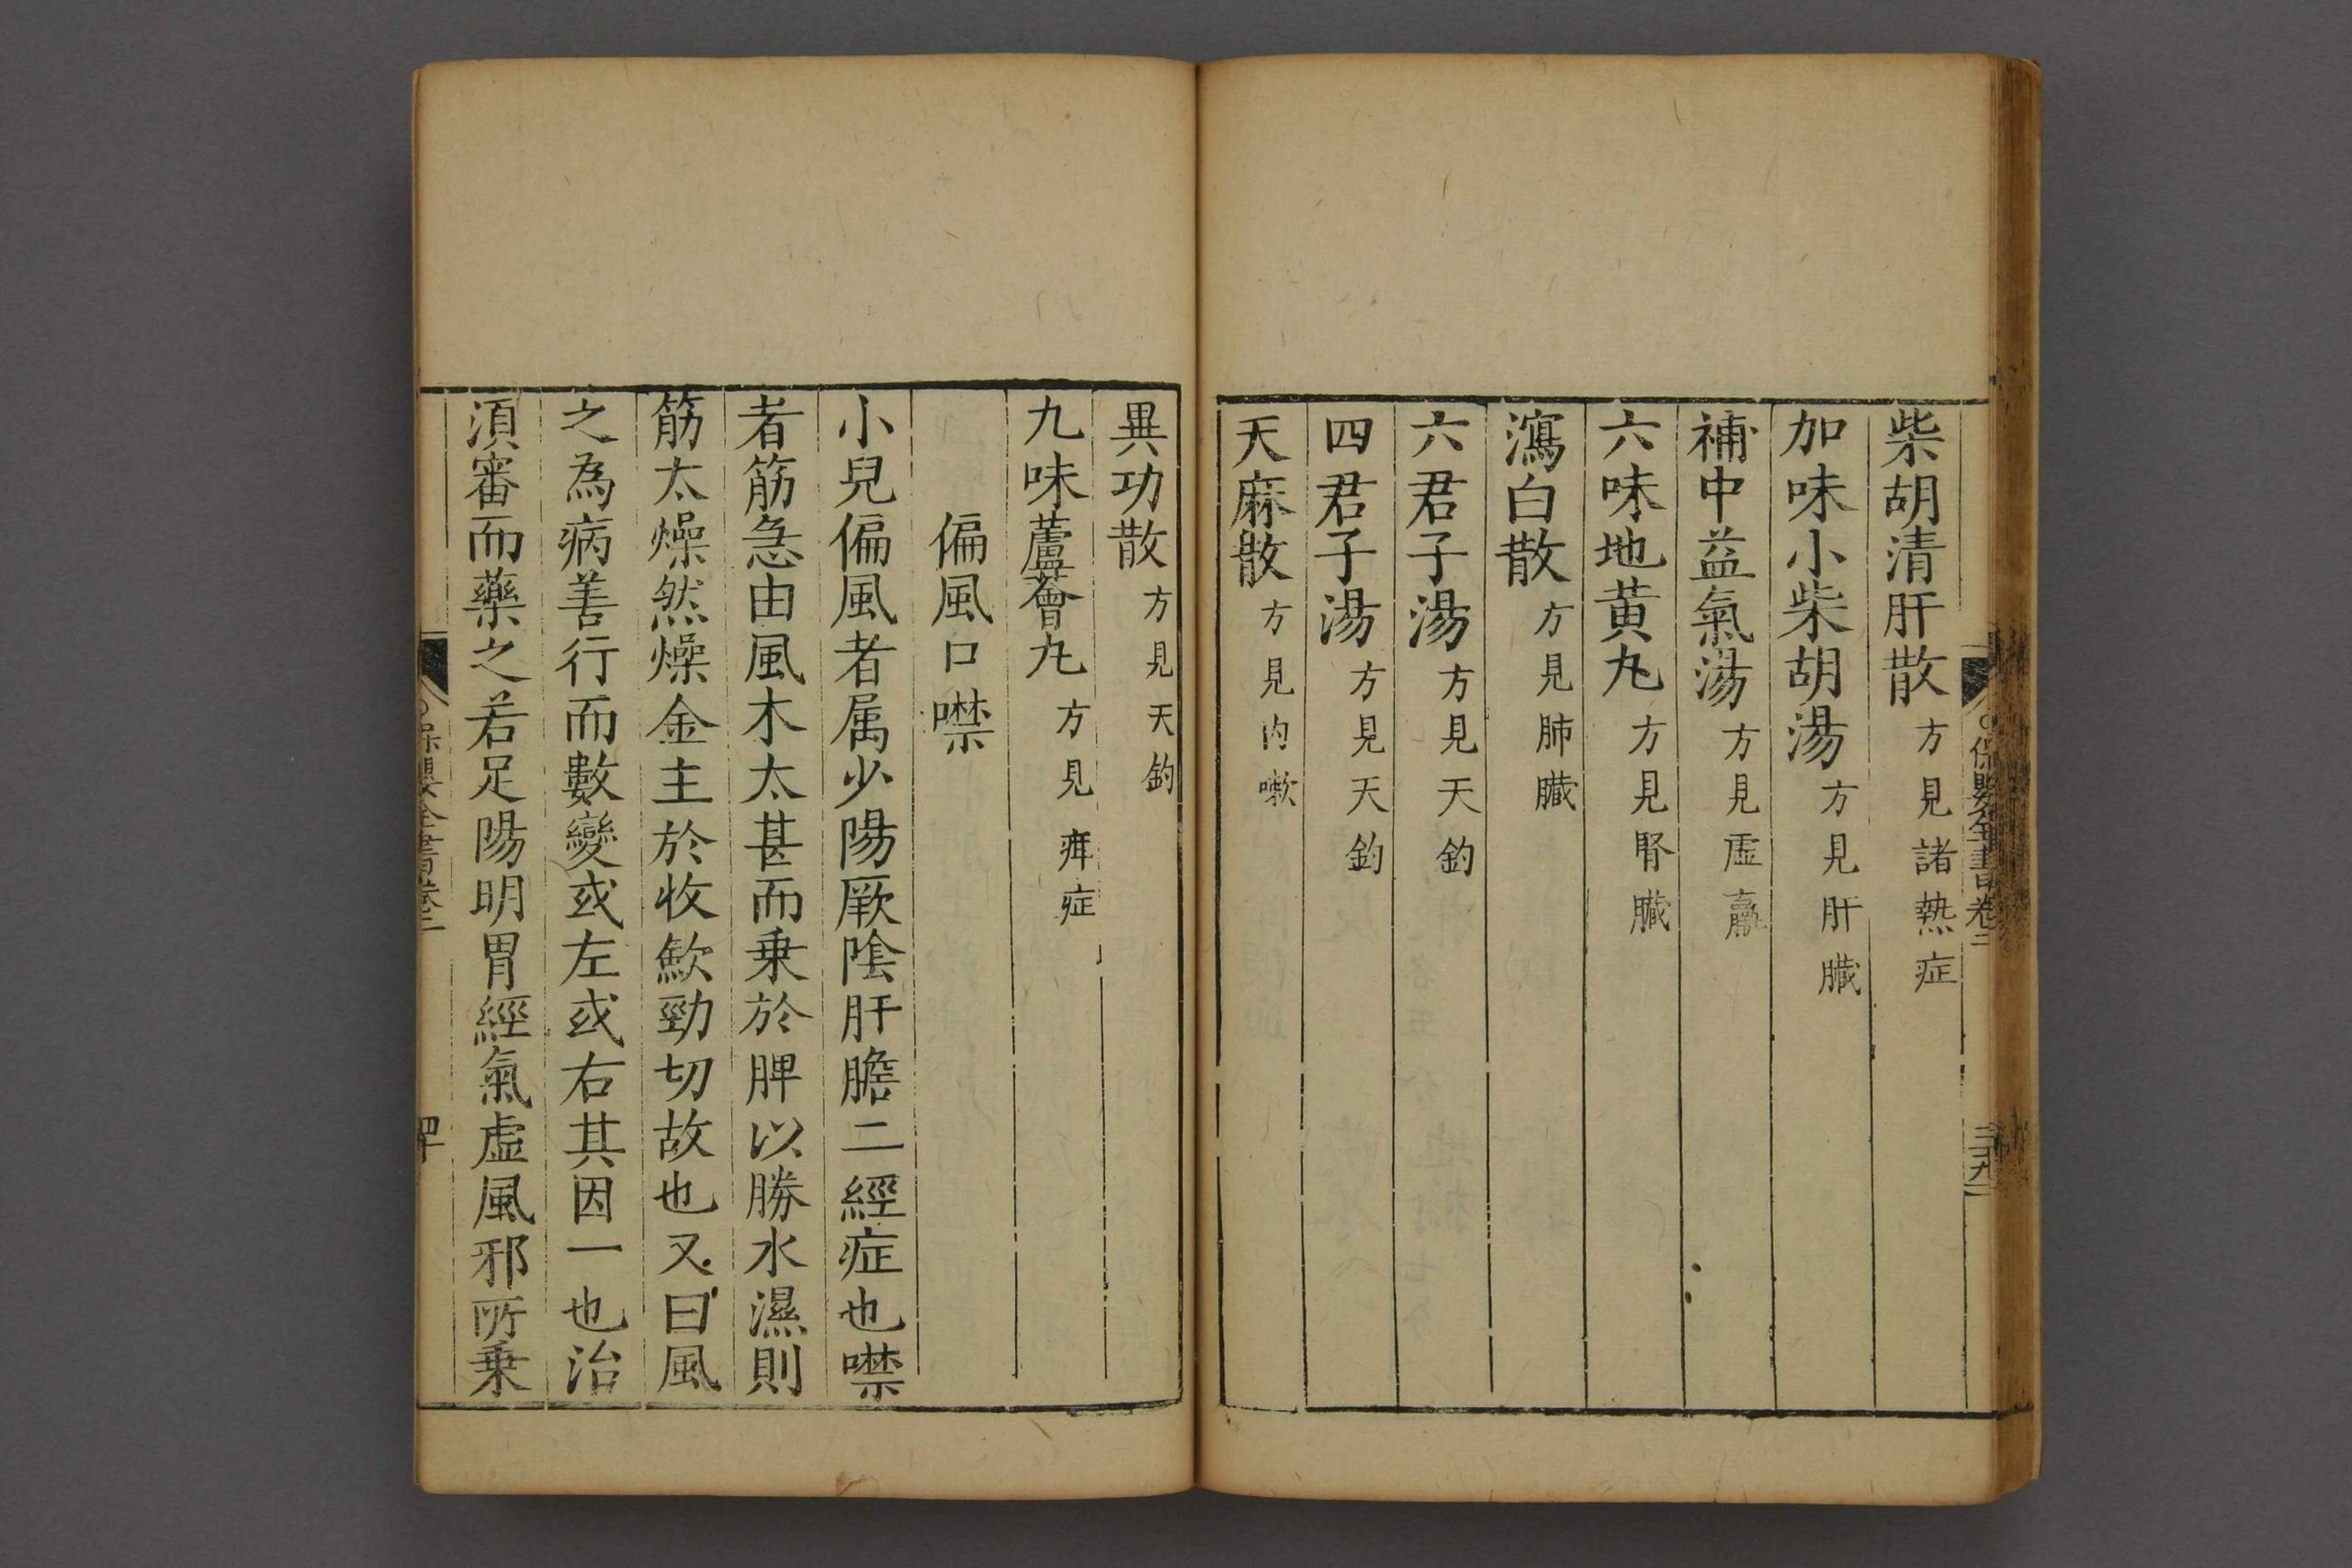 柴胡清肝散方見諸熱症
加味小柴胡湯方見肝臟
補中益氣湯方見虛羸
六味地黄丸方見腎臟
瀉白散方見肺臟
六君子湯方見天釣
四君子湯方見天釣
天麻散方見内嗽
保嬰全書卷二
三十九
異功散方見天釣
九味蘆薈丸方見疳症
偏風口噤
小兒偏風者属少陽厥陰肝膽二經症也噤
者筋急由風木太甚而乗於脾以勝水濕則
筋太燥然燥金主於收歛勁切故也又曰風
之為病善行而數變或左或右其因一也治
湏審而藥之若足陽明胃經氣虛風邪所乗
保嬰全書卷二
四十